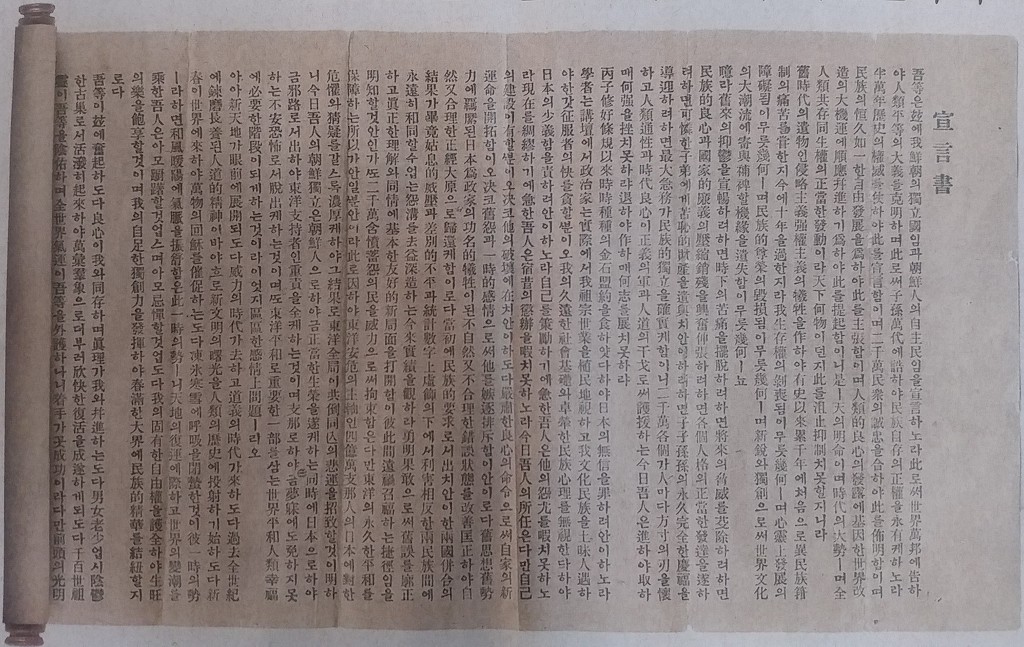 宣言書
吾等은玆에我鮮朝의獨立國임과朝鮮人의自主民임을宣言하노라此로써世界萬邦에告하
야人類平等의大義를克明하며此로써子孫萬代에誥하야民族自存의正權을永有케하노라
半萬年歷史의權威를仗하야此를宣言함이며二千萬民衆의誠忠을合하야此를佈明함이며
民族의恒久如一한自由發展을爲하야此를主張함이며人類的良心의發露에基因한世界改
造의大機運에順應幷進하기爲하야此를提起함이니是ㅣ天의明命이며時代의大勢ㅣ며全
人類共存同生權의正當한發動이라天下何物이던지此를沮止抑制치못할지니라
舊時代의遺物인侵略主義强權主義의犧牲을作하야有史以來累千年에처음으로異民族箝
制의痛苦를嘗한지今에十年을過한지라我生存權의剝喪됨이무릇幾何ㅣ며心靈上發展의
障礙됨이무릇幾何ㅣ며民族的尊榮의毁損됨이무릇幾何ㅣ며新銳와獨創으로써世界文化
의大潮流에寄與補裨할機緣을遺失함이무릇幾何ㅣ뇨
噫라舊來의抑鬱을宣暢하려하면時下의苦痛을擺脫하려하면將來의脅威를芟除하려하면
民族的良心과國家的廉義의壓縮銷殘을興奮伸張하려하면各個人格의正當한發達을遂하
려하면可憐한子弟에게苦恥的財産을遺與치안이하려하면子子孫孫의永久完全한慶福을
導迎하려하면最大急務가民族的獨立을確實케함이니二千萬各個가人마다方寸의刃을懷
하고人類通性과時代良心이正義의軍과人道의干戈로써護援하는今日吾人은進하야取하
매何强을挫치못하랴退하야作하매何志를展치못하랴
丙子修好條規以來時時種種의金石盟約을食하얏다하야日本의無信을罪하려안이하노라
學者는講壇에서政治家는實際에서我祖宗世業을植民地視하고我文化民族을土昧人遇하
야한갓征服者의快를貪할뿐이오我의久遠한社會基礎와卓犖한民族心理를無視한다하야
日本의少義함을責하려안이하노라自己를策勵하기에急한吾人은他의怨尤를暇치못하노
라現在를綢繆하기에急한吾人은宿昔의懲辦을暇치못하노라今日吾人의所任은다만自己
의建設이有할뿐이오決코他의破壞에在치안이하도다嚴肅한良心의命令으로써自家의新
運命을開拓함이오決코舊怨과一時的感情으로써他를嫉逐排斥함이안이로다舊思想舊勢
力에覊縻된日本爲政家의功名的犧牲이된不自然又不合理한錯誤狀態를改善匡正하야自
然又合理한正經大原으로歸還케함이로다當初에民族的要求로서出치안이한兩國併合의
結果가畢竟姑息的威壓과差別的不平과統計數字上虛飾의下에서利害相反한兩民族間에
永遠히和同할수업는怨溝를去益深造하는今來實績을觀하라勇明果敢으로써舊誤를廓正
하고眞正한理解와同情에基本한友好的新局面을打開함이彼此間遠禍召福하는捷徑임을
明知할것안인가또二千萬含憤蓄怨의民을威力으로써拘束함은다만東洋의永久한平和를
保障하는所以가안일뿐안이라此로因하야東洋安危의主軸인四億萬支那人의日本에對한
危懼와猜疑를갈스록濃厚케하야그結果로東洋全局이共倒同亡의悲運을招致할것이明하
니今日吾人의朝鮮獨立은朝鮮人으로하야금正當한生榮을遂케하는同時에日本으로하야
금邪路로서出하야東洋支持者인重責을全케하는것이며支那로하야금夢寐에도免하지못
하는不安恐怖로서脫出케하는것이며또東洋平和로重要한一部를삼는世界平和人類幸福
에必要한階段이되게하는것이라이엇지區區한感情上問題ㅣ리오
아아新天地가眼前에展開되도다威力의時代가去하고道義의時代가來하도다過去全世紀
에鍊磨長養된人道的精神이바야흐로新文明의曙光을人類의歷史에投射하기始하도다新
春이世界에來하야萬物의回穌를催促하는도다凍氷寒雪에呼吸을閉蟄한것이彼一時의勢
ㅣ라하면和風暖陽에氣脈을振舒함은此一時의勢ㅣ니天地의復運에際하고世界의變潮를
乘한吾人은아모躕躇할것업스며아모忌憚할것업도다我의固有한自由權을護全하야生旺
의樂을飽享할것이며我의自足한獨創力을發揮하야春滿한大界에民族的精華를結紐할지
로다
吾等이玆에奮起하도다良心이我와同存하며眞理가我와幷進하는도다男女老少업시陰鬱
한古巢로서活潑히起來하야萬彙群象으로더부러欣快한復活을成遂하게되도다千百世祖
靈이吾等을陰佑하며全世界氣運이吾等을外護하나니着手가곳成功이라다만前頭의光明